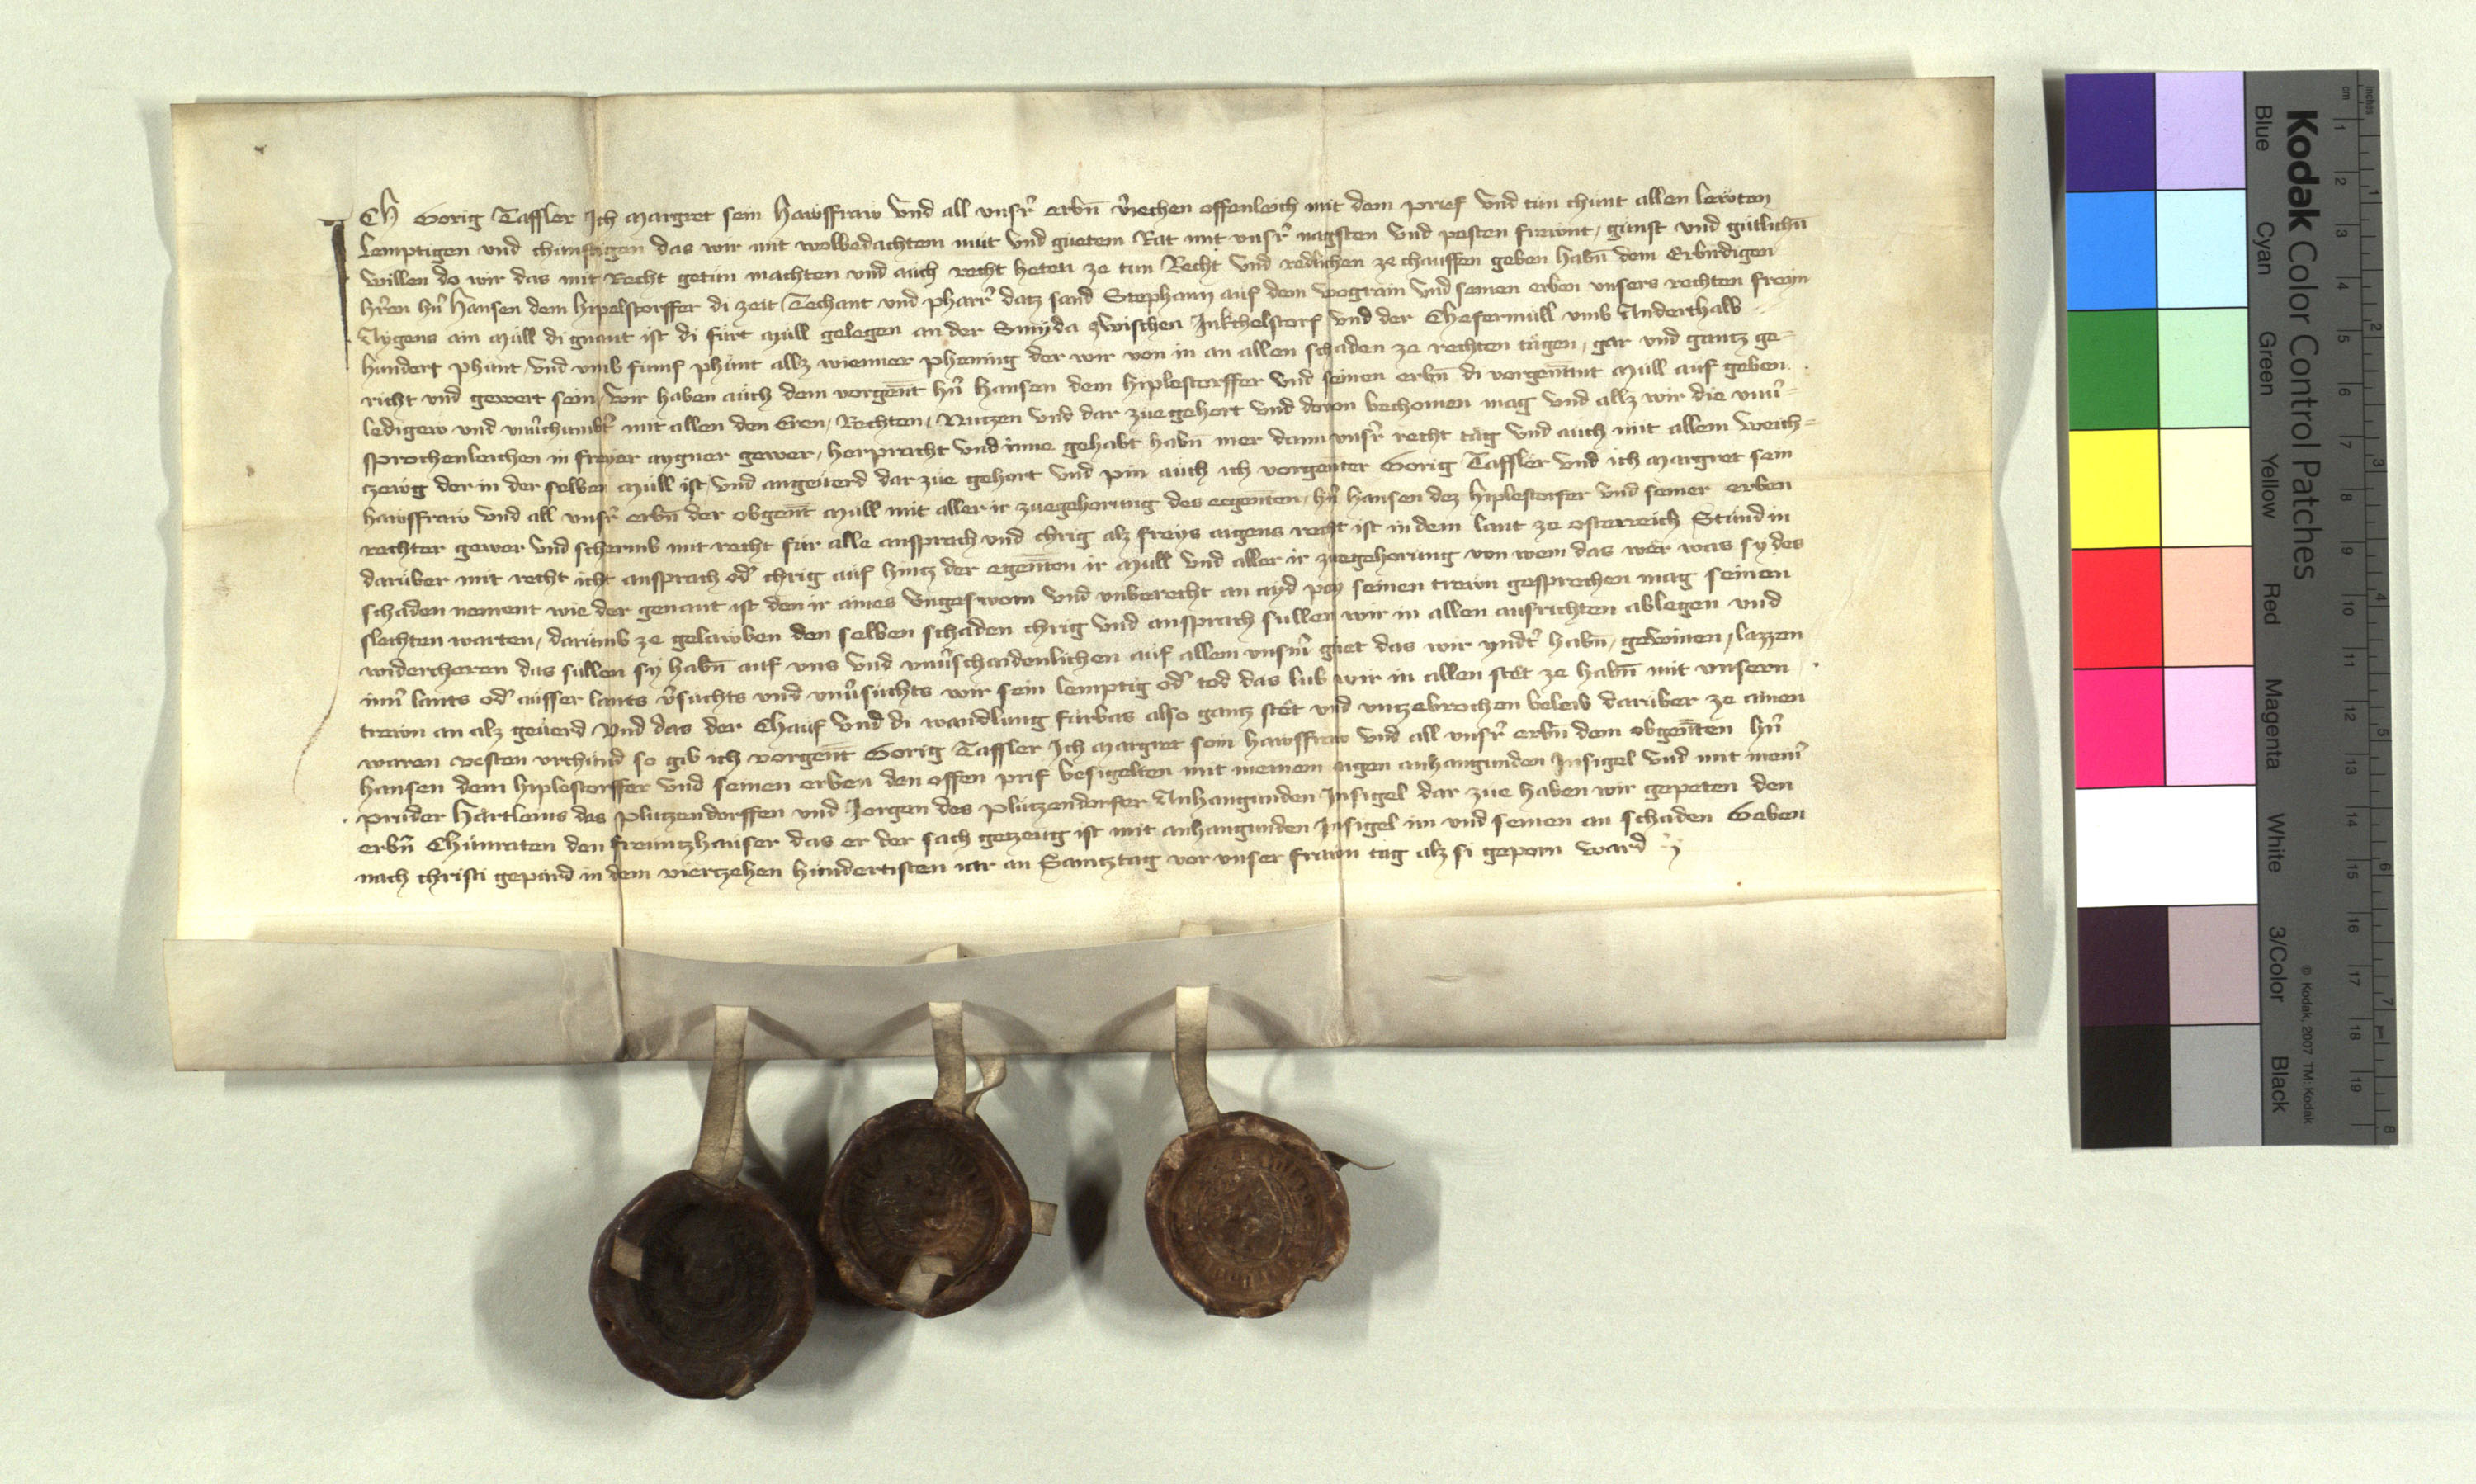 ICh Gorig Taffler Ich Margret sein hawsfraw vnd all vnsr̃ erbñ ṽiechen offenleich mit dem prief vnd tun chunt allen lewten
lemptigen vnd chunftigen das wir mit wolbedachtem mut vnd guetem Rat mit vnsr̃ nagsten vnd pesten frewnt, gunst vnd gutlichñ
willen do wir das mit Recht getun machten vnd auch recht heten ze tun Recht vnd redlichen ze chauffen geben habñ dem Erbirdigen
hr̃ren hr̃ hansen dem hipelstorffer di zeit Techant vnd pharr̃ datz sand Stephann auf dem wograin vnd seinen erben vnsers rechten freyn
Aygens ain Mull di gnant ist di furt Mull gelegen an der Smyda zwischen Inkchelstorf vnd der Chefermull vmb Anderthalb
hundert phunt vnd vmb funf phunt allz wienner phening der wir von in an allen schaden ze rechten tagen, gar vnd gantz ge-
richt vnd gewert sein, wir haben auch dem vorgeñt hr̃ hansen dem hiplestorffer vnd seinen erbñ di vorgeñtint Mull auf geben
ledigew vnd vnũchumbt̃ mit allen den Eren, Rechten, Nutzen vnd dar zue gehort vnd dovon bechomen mag vnd allz wir die vnũ-
sprochenleichen in freyer aygner gewer, herpracht vnd inne gehabt habñ mer dann vnsr̃ recht tag vnd auch mit allem weich-
tzewg der in der selben Mull ist, vnd angeuerd dar zue gehort vnd pin auch ich vorgenter Gorig Taffler vnd ich Margret sein
hawsfraw vnd all vnsr̃ erbñ der obgeñt Mull mit aller ir zuegehorung des eegenten, hr̃ hansen dez hiplestorfer vnd seiner erben
rechter gewer vnd schermb mit recht fur alle ansprach vnd chrig alz freys aigens recht ist in dem lant ze osterreich Stund in
daruber mit recht icht ansprach od̃ chrig auf hintz der egeñten ir Mull vnd aller ir zuegehorung von wem das wer was sy des
schaden nement wie der genant ist den ir aines vngesworn vnd vnberecht an ayd pey seinen trewn gesprechen mag seinen
slechten warten, darumb ze gelawben den selben schaden chrig vnd ansprach sullen wir in allen ausrichten ablegen vnd
widercheren das sullen sy habñ auf vns vnd vnũschaidenlichen auf allem vnsm̃ guet das wir yndt̃ habñ, gewinen, lazzen
inn̄ lants od̃ ausser lants ṽsuchts vnd vnũsuchts wir sein lemptig od̃ tod das lub wir in allen stet ze habñ mit vnsern
trewn an alz geuerd vnd das der Chauf vnd di wandlung furbas also gantz stet vnd vntzebrochen beleib daruber ze ainen
waren vesten vrchund so gib ich vorgeñt Gorig Taffler Ich Margret sein hawsfraw vnd all vnsr̃ erbñ dem obgeñten hr̃
hansen dem hiplestorffer vnd seinen erben den offen prif besigelten mit meinem aigen anhangunden Insigel vnd mit mein̄
pruder hartleins des plutzendorffen vnd Jorgen des plutzendorfer Anhangunden Insigel dar zue haben wir gepeten den
erbñ Chunraten den freuntzhauser das er der sach getzeug ist mit anhangunden Insigel im vnd seinen an schaden Geben
nach christi gepurd in dem viertzehen hundertisten iar an Samtztag vor vnser frawn tag alz si geporn ward
Kodak Color Control Patches
Blue Cyan Green Yellow Red Magenta White 3/Color Black
© Kodak, 2007 TM: Kodak
cm 1 2 3 4 5 6 7 8 9 10 11 12 13 14 15 16 17 18 19
inches 1 2 3 4 5 6 7 8